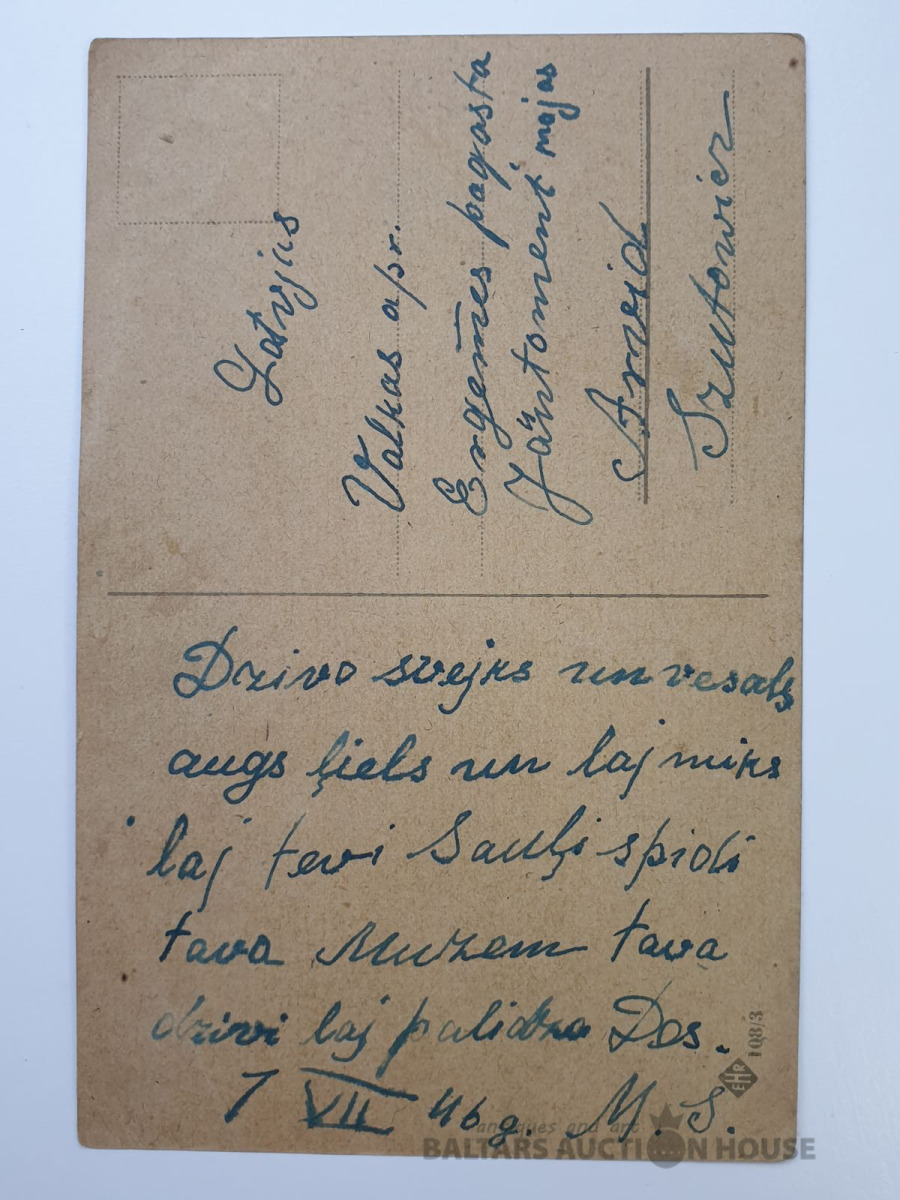 Latvjas
Valkas apr.
Ergemes pagasta
Jāntoment mojas
Arvid
Szutowicz
Dzivo svejks un vesals
augs ļiels un laj miks
laj tevi Sauļi spidi
tava Muzem tava
dzivi laj palidza Des.
7 VII 46 g. M. S.
EHR 108/3
antiques and art
BALTARS AUCTION HOUSE